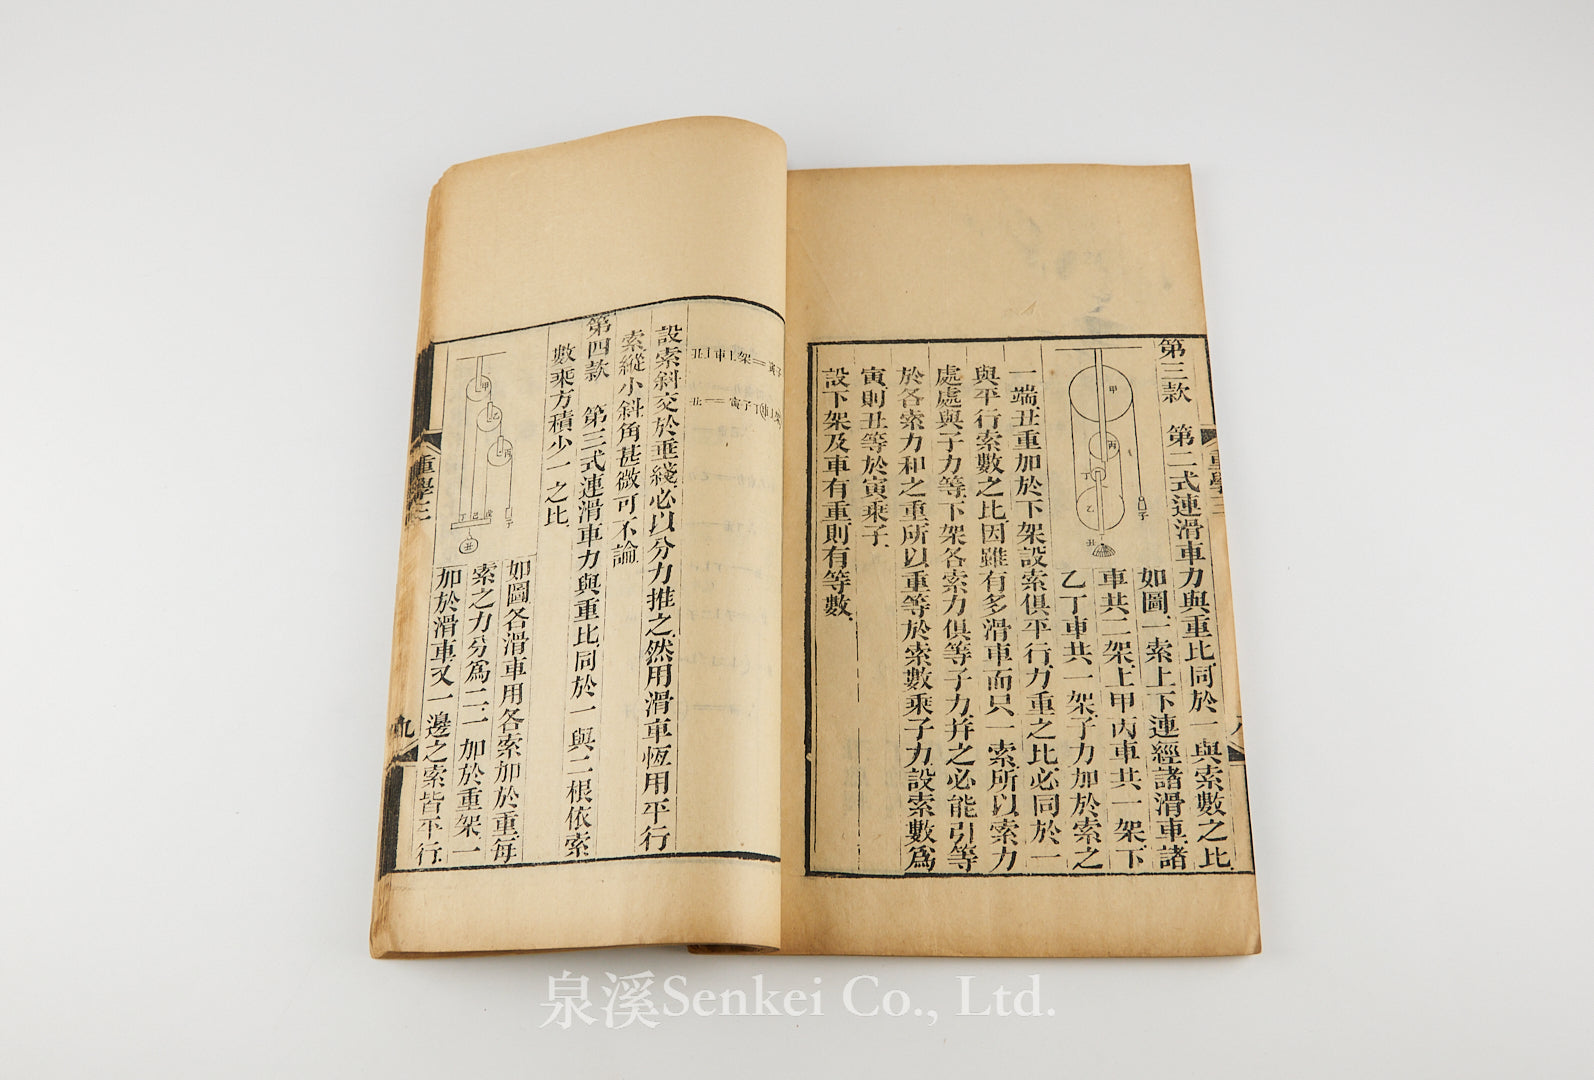 第三款　第二式連滑車力與重比同於一與索數之比
如圖一索上下連經諸滑車諸
車共二架上甲丙車共一架下
乙丁車共一架子力加於索之
一端丑重加於下架設索俱平行力重之比必同於一
與平行索數之比因雖有多滑車而只一索所以索力
處處與子力等下架各索力俱等子力并之必能引等
於各索力和之重所以重等於索數乘子力設索數為
寅則丑等於寅乘子
設下架及車有重則有等數
甲
丙
丁
乙
丑
子
重學三
八
丑⊥車⊥架＝寅子
設索斜交於垂綫必以分力推之然用滑車恆用平行
索縱小斜角甚微可不論
第四款　第三式連滑車力與重比同於一與二根依索
數乘方積少一之比
如圖各滑車用各索加於重每
索之力分為二一加於重架一
加於滑車又一邊之索皆平行
甲
乙
丙
丁
己
戊
子
丑
重學三
九
泉溪Senkei Co., Ltd.